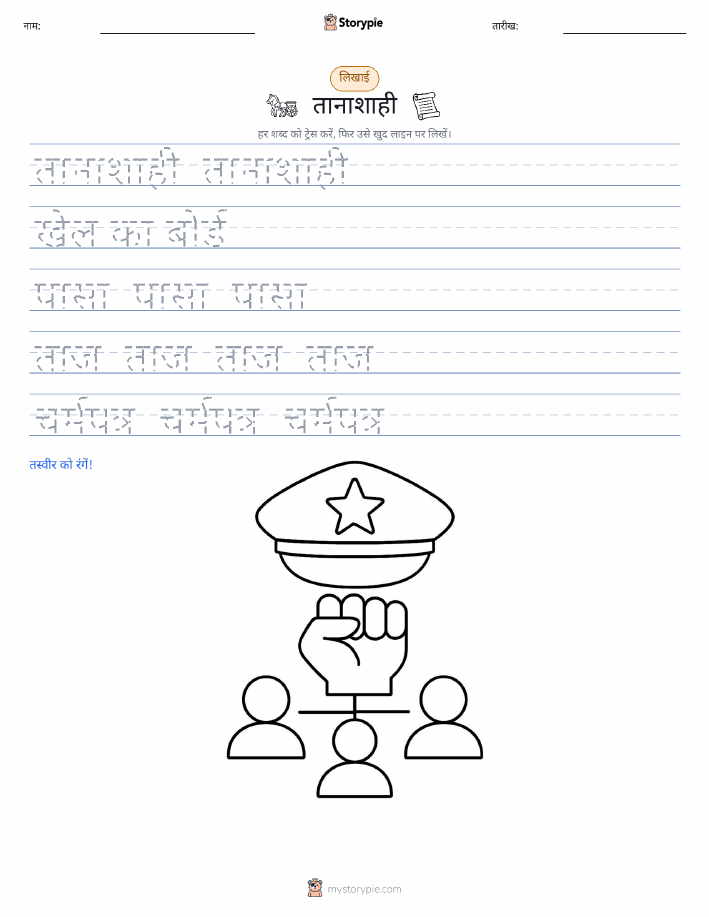 नाम:
Storypie
तारीख:
लिखाई
तानाशाही
हर शब्द को ट्रेस करें, फिर उसे खुद लाइन पर लिखें।
तानाशाही तानाशाही
खेल का बोर्ड
पासा पासा पासा
ताज ताज ताज ताज
चर्मपत्र चर्मपत्र चर्मपत्र
तस्वीर को रंगें!
mystorypie.com